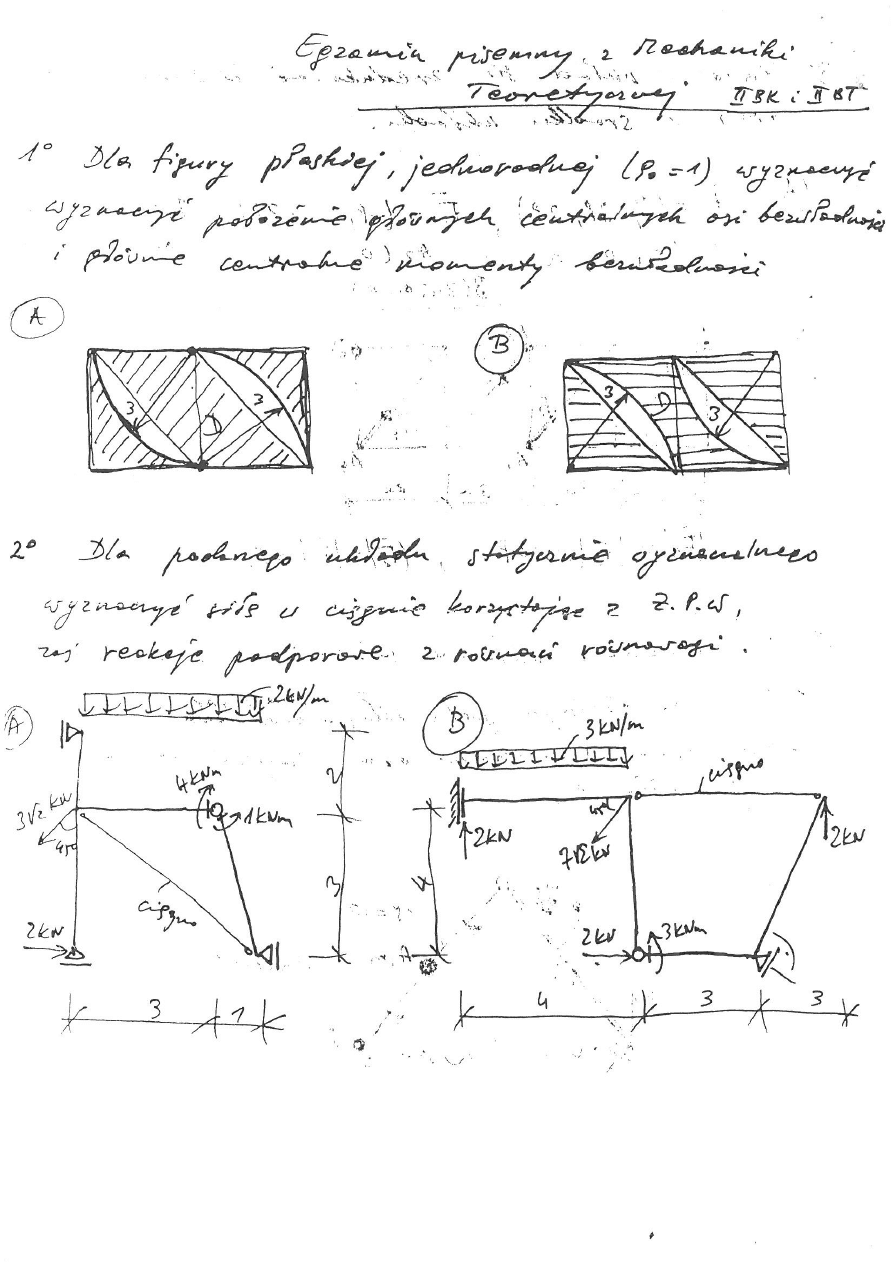 Egzamin pisemny z Mechaniki
Teoretycznej II BK i II BT
1° Dla figury płaskiej, jednorodnej (ρ₀ = 1) wyznaczyć
wyznaczyć położenie głównych centralnych osi bezwładności
i główne centralne momenty bezwładności
A
B
3
D
3
3
D
3
2° Dla podanego układu statycznie wyznaczalnego
wyznaczyć siłę w cięgnie korzystając z Z.P.W,
zaś reakcje podporowe z równań równowagi.
A
2kN/m
4kNm
1kNm
3√2 kN
45°
cięgno
2kN
2
3
3
1
B
3kN/m
cięgno
45°
2kN
7√2kN
2kN
4
2kN
3kNm
A
4
3
3